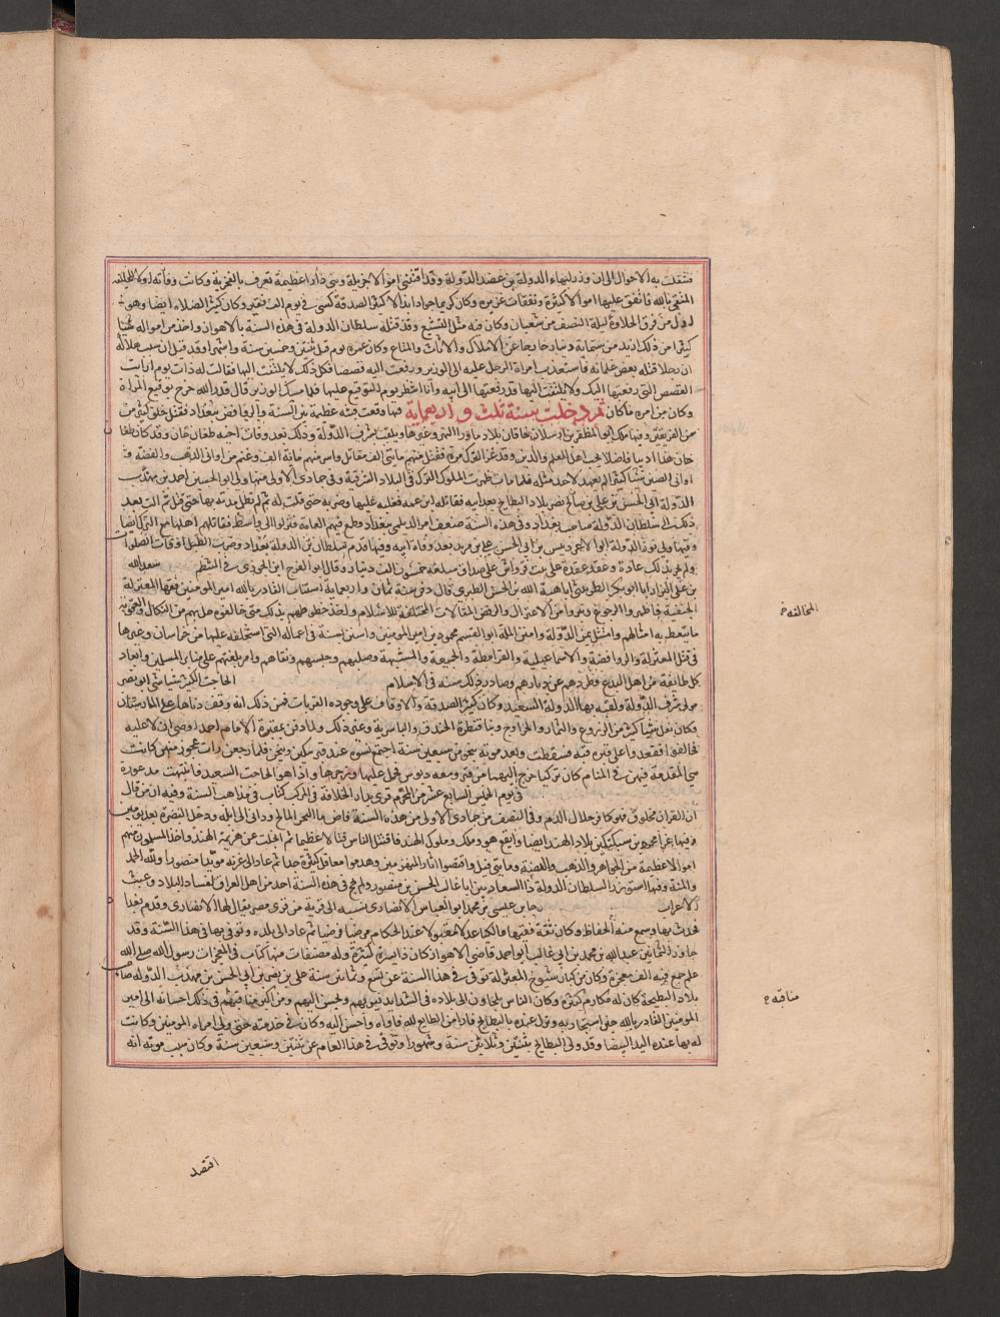 فتنقلت به الاحوال الى ان وزر لبهاء الدولة بن عضد الدولة وقد اقتنى اموالا جزيلة وبنى دارا عظيمة تعرف بالفخرية وكانت
المتقي بالله فانفق عليها اموالا كثيرة ونفقات غزيره وكان كريما جوادا بذالا كثير الصدقة كسى في يوم الف فقير وكان كثير الصلاه ايضا وهو
اول من فرق الحلاوة ليلة النصف من شعبان وكان فيه ميل للتشيع وقد قتله سلطان الدولة في هذه السنة بالاهواز واخذ من امواله شيئا
كثيرا من ذلك ازيد من ستمائة دينار خارجا عن الاملاك والاثاث والمتاع وكان عمره يوم قتل ثنتين وخمسين سنة واشهرا وقد قيل ان سبب هلاكه
ان رجلا قتله بعض غلمانه فاستعدت امراة الرجل عليه الى الوزير ورفعت اليه قصصا فكل ذلك لا يلتفت اليها فقالت له ذات يوم ارايت
القصص التي رفعتها اليك ولا تلتفت اليها قد رفعتها الى الله وانا انتظر يوم التوقيع عليها فلما مسك الوزير قال قد والله خرج توقيع المراة
وكان من امره ما كان ثم دخلت سنة ثلث واربعماية فيها وقعت فتنة عظيمة بين السنة والروافض ببغداد فقتل خلق كثير من
من الفريقين وفيها ملك ابو المظفر بن ارسلان خاقان بلاد ما وراء النهر وغيرها ويلقب بشرف الدولة وذلك بعد وفاة اخيه طغان خان وقد كان طغان
خان هذا دينا فاضلا محب اهل العلم والدين وقد غزا الترك مرة فقتل منهم مائتي الف مقاتل واسر منهم مائة الف وغنم من اواني الذهب والفضة
اواني الصين شيئا كثيرا لم يعهد لاحد مثله فلما مات ظهرت الملوك الترك في البلاد الشرقية وفي جمادى الاولى منها ولي ابو الحسين احمد بن مهذب
الدولة ابي الحسن بن علي بن بلاد البطايح بعد ابيه فقاتله ابن عمه فغلبه عليها وضربه حتى قتله ثم لم تطل مدته بها حتى قتل ثم الت بعد
ذلك الى سلطان الدولة صاحب بغداد وفي هذه السنة ضعف امر الديلم ببغداد وطمع فيهم العامة فنزلوا الى واسط فقاتلهم اهلها مع الترك ايضا
وفيها ولي نور الدولة ابو الاعز دبيس بن ابي الحسن علي بن مزيد بعد وفاة ابيه وفيها قدم سلطان بن الدولة بغداد وضرب الطبل اوقات الصلوات
ولم يجر بذلك عادة وعقد عقده على بنت قرواش على صداق مبلغه خمسون الف دينار وقال ابو الفرج ابن الجوزي في المنتظم سعد الله
بن علي البزاز ابا ابو بكر الطريثيثي ابا هبة الله بن الحسن الطبري قال وفي سنة ثمان واربعماية استتاب القادر بالله امير المومنين فقها المعتزلة
الحنفية فاظهروا الرجوع وتبروا من الاعتزال والرفض والمقالات المخالفة للاسلام واخذ خطوطهم بذلك متى خالفوه حل بهم من النكال والعقوبة
ما يتعظ به امثالهم وامتثل يمين الدولة وامين الملة ابو القسم محمود بن امير المومنين واستن بسنة في اعماله التي استخلفه عليها من خراسان وغيرها
في قتل المعتزلة والروافضة والاسماعيلية والقرامطة والجهمية والمشبهة وصلبهم وحبسهم ونفاهم وامر بلعنهم على منابر المسلمين وابعاد
كل طايفة من اهل البدع وطردهم عن ديارهم وصار ذلك سنه في الاسلام الحاجب الكبير شباشي ابو نصر
مولى شرف الدولة ولقبه بهاء الدولة السعيد وكان كثير الصدقة والاوقاف على وجوه القربات فمن ذلك انه وقف دباها على المارستان
وكان تغل شيئا كثيرا من الزروع والثمار والخراج وبنا قنطرة الخندق والياسرية وغير ذلك ولما دفن بمقبرة الامام احمد اوصى ان لا عليه
فخالفوا فعقدوا على قبره قبة فسقطت وبعد موته بنحو من سبعين سنة اجتمع نسوة عند قبره يبكين وينحن فلما رجعن رات عجوز منهن كانت
هي المقدمة فيهن في المنام كان تركيا خرج اليها من قبره ومعه دبوس فحمل عليها وزجرها واذا هو الحاجب السعيد فانتبهت مذعورة
في يوم الخميس السابع عشر من المحرم قري بدار الخلافة في الموكب كتاب في مذاهب السنة وفيه ان من قال
ان القران مخلوق فهو كافر حلال الدم وفي النصف من جمادى الاولى من هذه السنة فاض ماء البحر المالح ودانى الابلة ودخل البصرة بعد
وفيها غزا محمود بن سبكتكين بلاد الهند ايضا وواقع هو وملك وملوك الهند فاقتتل الناس قتالا عظيما ثم انجلت عن هزيمة الهند واخذ المسلمون منهم
اموالا عظيمة من الجواهر والذهب والفضة ومايتي فيل واقتصوا اثار المنهزمين وهدموا معاقل كثيرة جدا ثم عاد الى غزنه مويدا منصورا ولله الحمد
والمنة وفيها استوزر السلطان الدولة ذا السعادتين ابا غالب الحسن بن منصور ولم يحج في هذه السنة احد من اهل العراق لفساد البلاد وعبث
الاعراب رجاء بن عيسى بن محمد ابو العباس الانصناوي نسبه الى قرية من قرى مصر يقال لها الانصناوي وقدم بغداد
فحدث بها وسمع منه الحفاظ وكان ثقة فقيها مالكيا عدلا مقبولا عند الحكام مرضيا فرضيا ثم عاد الى بلده وتوفي بها في هذا السنة وقد
جاوز الثمانين عبد الله بن محمد بن ابي غالب ابو احمد قاضي الاهواز كان ذا ثروة كثيرة وله مصنفات منها كتاب في المعجزات رسول الله صلى الله
علم جمع فيه الف معجزة وكان من كبار شيوخ المعتزلة توفي في هذا السنة عن تسع وثمانين سنة علي بن نصر بن ابي الحسن بن مهذب الدولة صاحب
بلاد البطيحة كان له مكارم كثيرة وكان الناس يلجاون الى بلاده في الشدايد فيويهم ويحسن اليهم ومن اكبر مناقبهم في ذلك احسانه الى امير
المومنين القادر بالله حين استجار به ونزل عنده بالبطايح فارا من الطايع لله فاواه واحسن اليه وكان في خدمته حتى ولي امراه المومنين وكانت
له بها عنده اليد البيضا وقد ولي البطايح ثنتين وثلاثين سنة وشهورا وتوفي في هذا العام عن ثنتين وسبعين سنة وكان سبب موته انه
المخالفه
مناقبه
افتصد